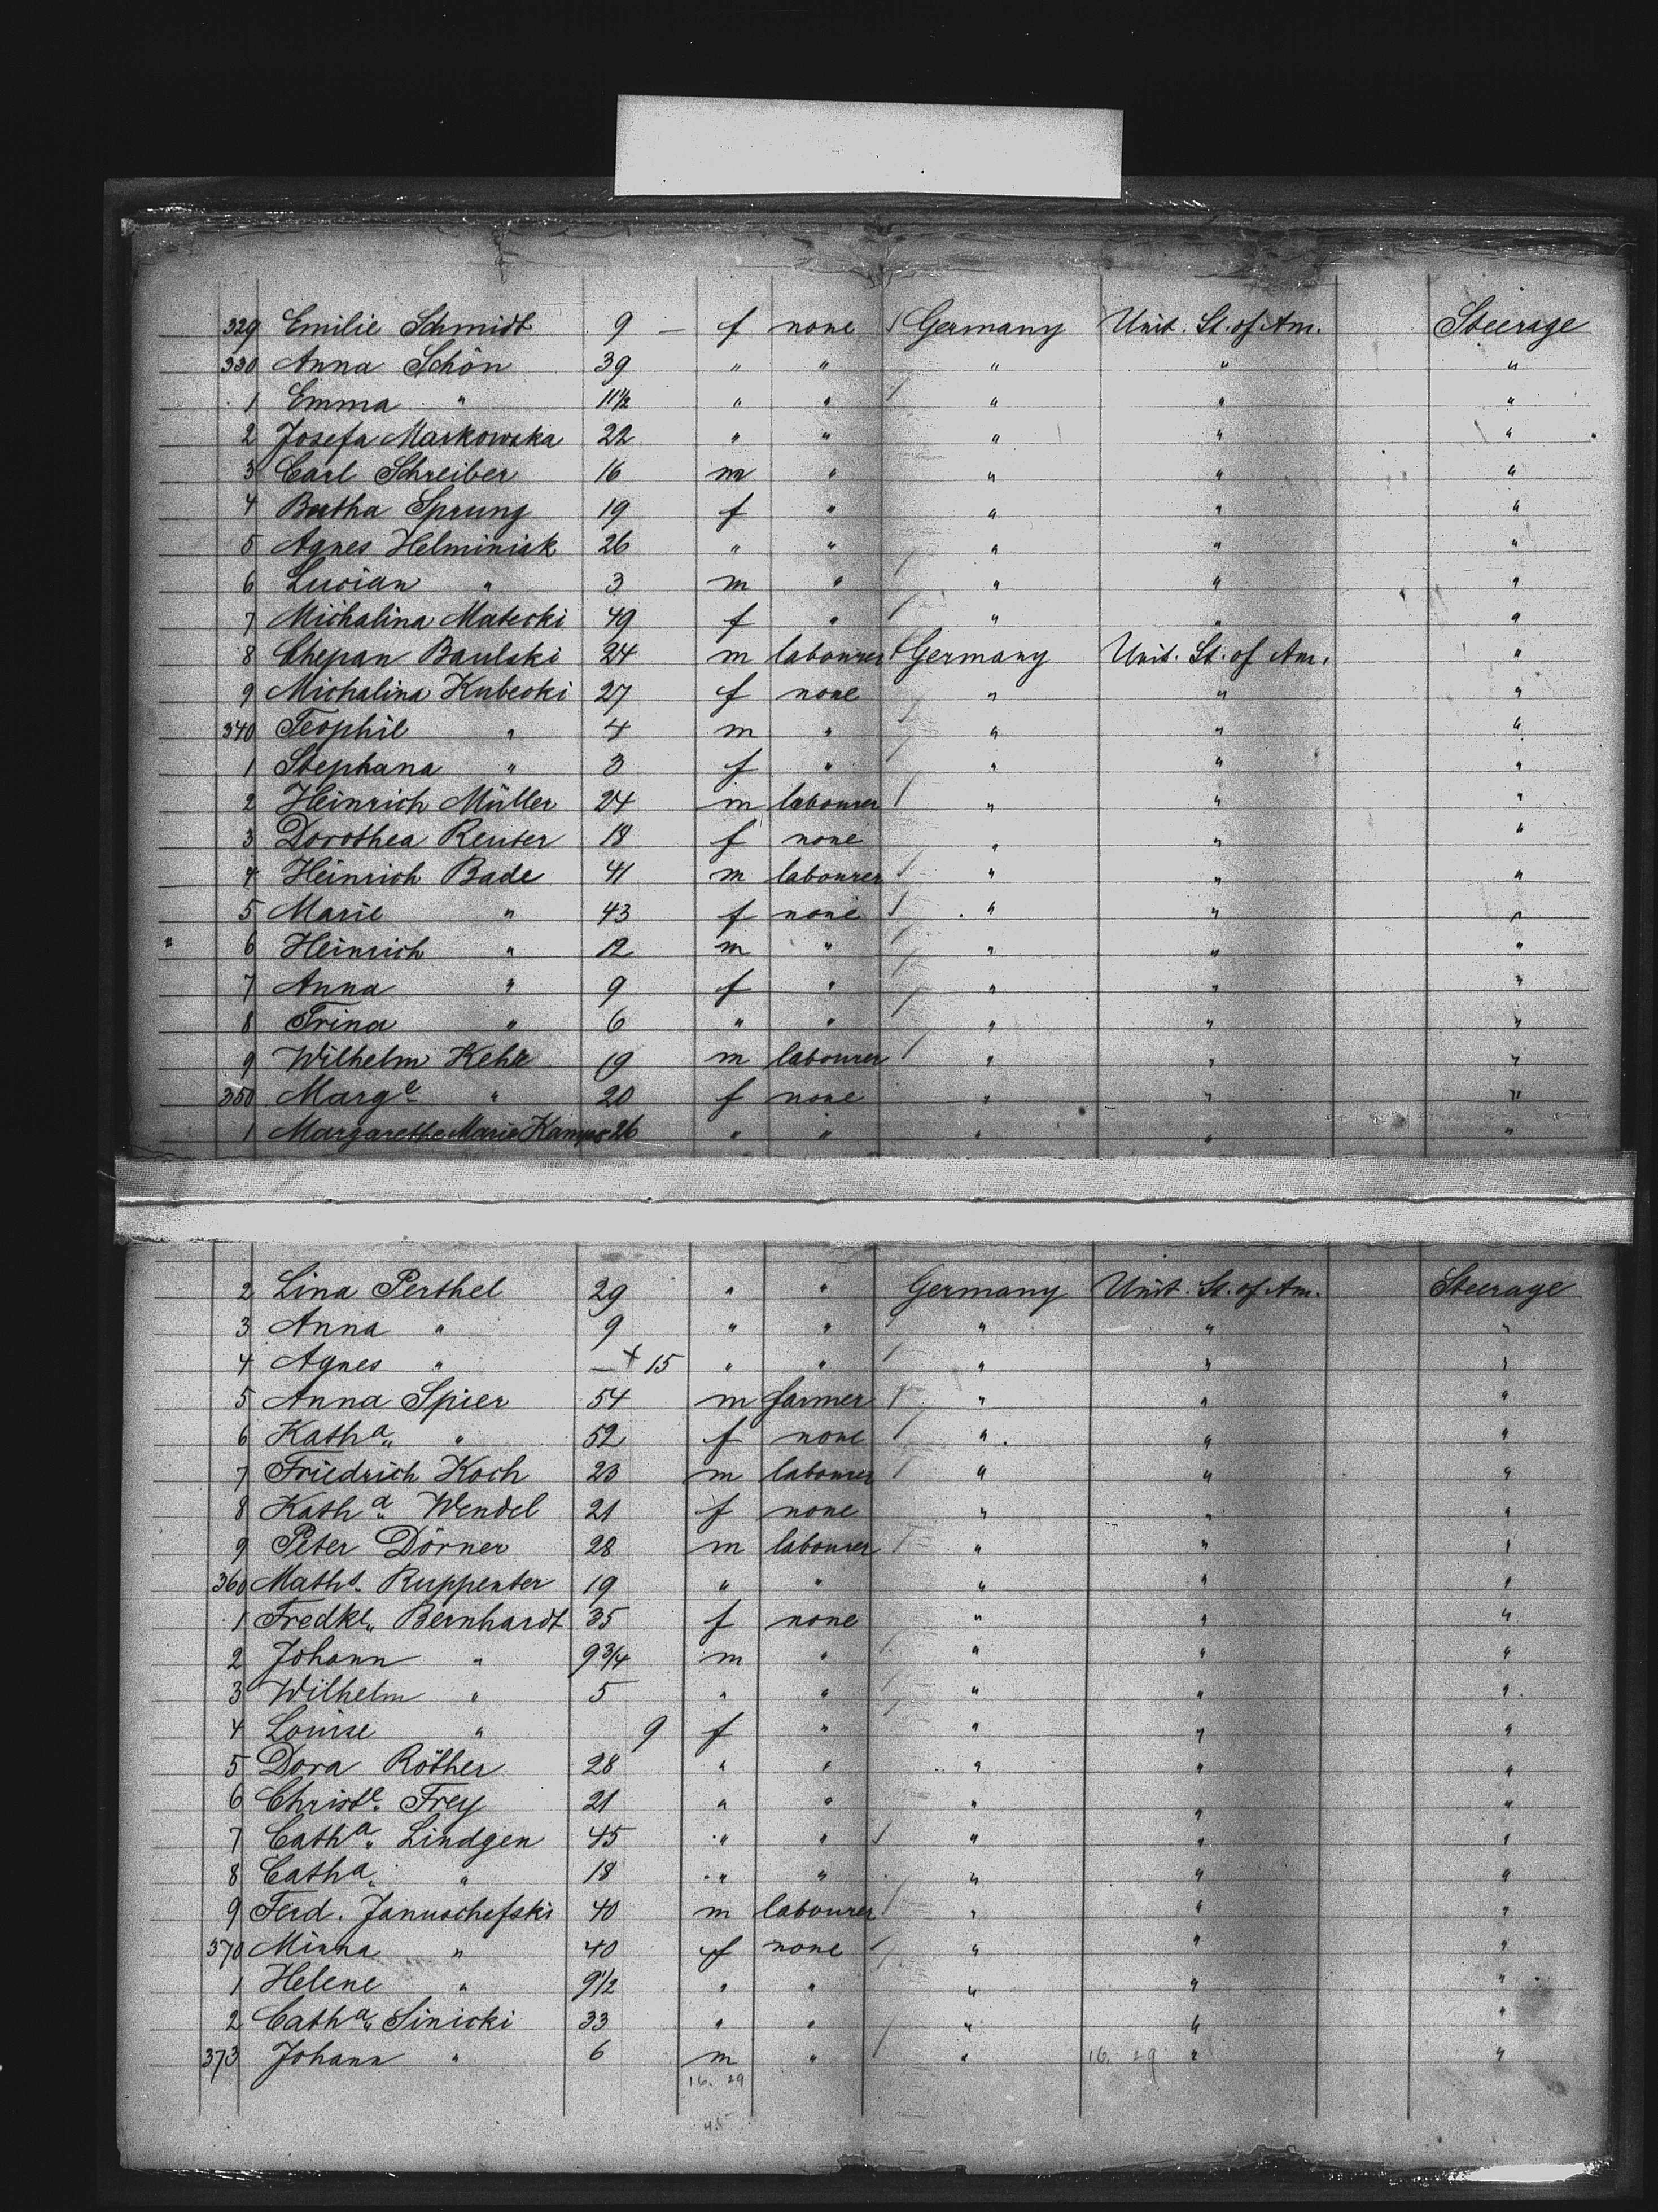 329 Emilie Schmidt 9 — f none Germany Unit. St. of Am. Steerage
330 Anna Schön 39 " " " " "
1 Emma " 11½ " " " " "
2 Josefa Markowska 22 " " " " "
3 Carl Schreiber 16 m " " " "
4 Bertha Sprung 19 f " " " "
5 Agnes Helminiak 26 " " " " "
6 Lucian " 3 m " " " "
7 Michalina Matecki 49 f " " " "
8 Chepan Baulski 24 m labourer Germany Unit. St. of Am. "
9 Michalina Kubecki 27 f none " " "
340 Teophil " 4 m " " " "
1 Stephana " 3 f " " " "
2 Heinrich Müller 24 m labourer " " "
3 Dorothea Reuter 18 f none " " "
4 Heinrich Bade 41 m labourer " " "
5 Marie " 43 f none " " "
6 Heinrich " 12 m " " " "
7 Anna " 9 f " " " "
8 Trina " 6 " " " " "
9 Wilhelm Kehr 19 m labourer " " "
350 Marge " 20 f none " " "
1 Margarethe Marie Kamps 26 " " " " "
2 Lina Perthel 29 " " Germany Unit. St. of Am. Steerage
3 Anna " 9 " " " " "
4 Agnes " — + 15 " " " " "
5 Anna Spier 54 m farmer " " "
6 Katha " 52 f none " " "
7 Friedrich Koch 23 m labourer " " "
8 Katha Wendel 21 f none " " "
9 Peter Dörner 28 m labourer " " "
360 Maths. Ruppenter 19 " " " " "
1 Fredke Bernhardt 35 f none " " "
2 Johann " 9¾ m " " " "
3 Wilhelm " 5 " " " " "
4 Louise " 9 f " " " "
5 Dora Röther 28 " " " " "
6 Christe. Frey 21 " " " " "
7 Catha Lindgen 45 " " " " "
8 Catha " 18 " " " " "
9 Ferd. Januschefski 40 m labourer " " "
370 Minna " 40 f none " " "
1 Helene " 9½ " " " " "
2 Catha Sinicki 33 " " " " "
373 Johann " 6 m " " 16. 29 " "
16. 29
45